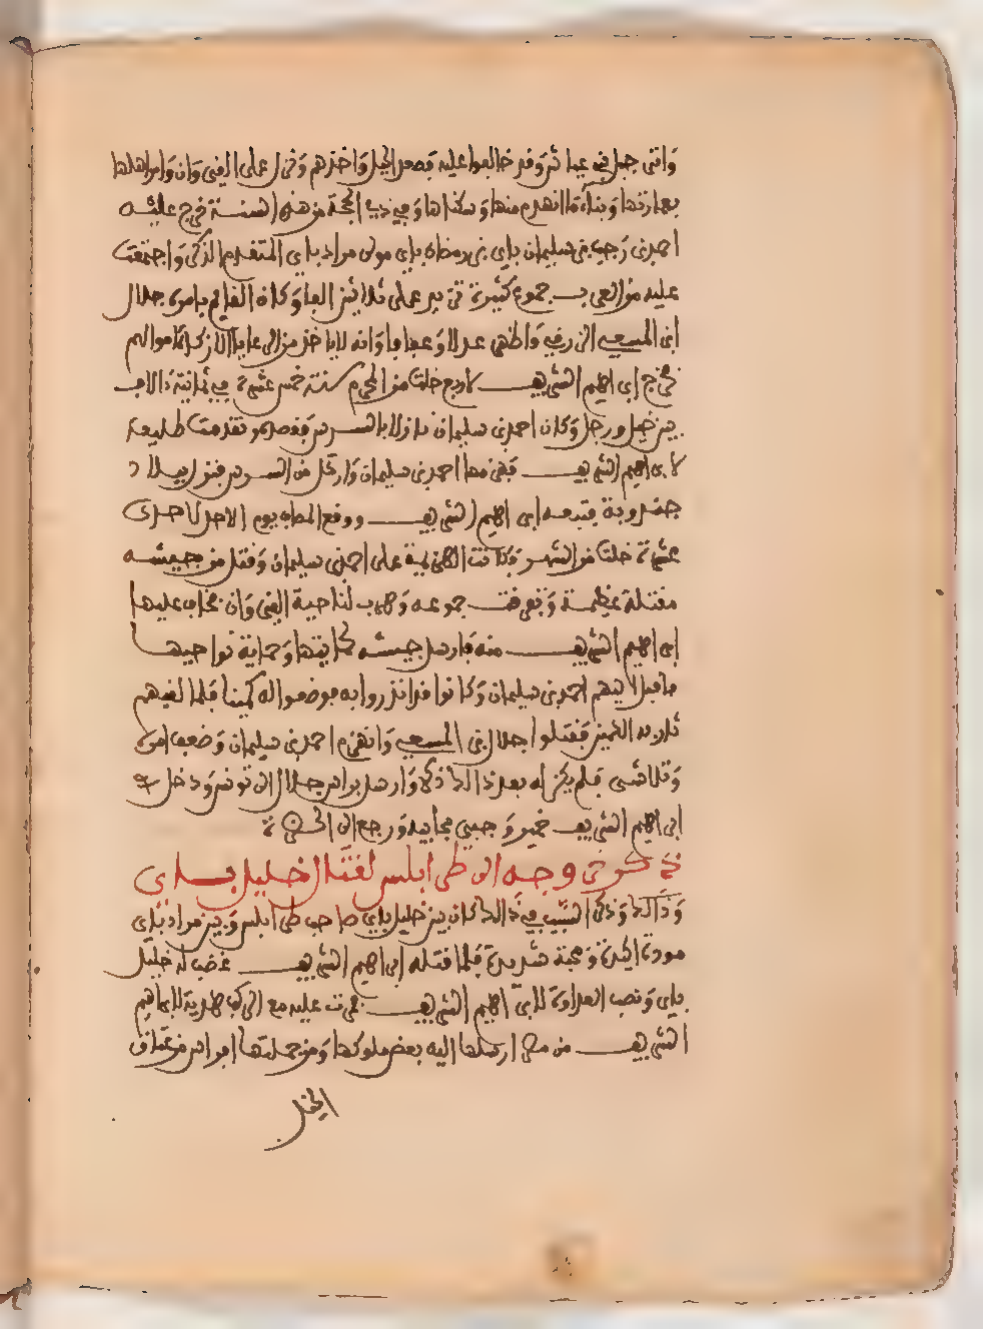 واتى جبل في عياشر وقد خالفوا عليه فصعد الجبل واخذهم ونزل على القيروان وامر اهلها
بعمارتها وبناء ما انهدم منها وسكناها وفي ذي الحجة من هذه السنة خرج عليه
احمد بن رجب بن سليمان باي بن رمضان باي مولى مراد باي المتقدم الذكر واجتمعت
عليه من العرب جموع كثيرة تزيد على ثلاثين الفا وكان القايم بامره جلال
ابن المسعي الرزقي واظهر عدلا وعفافا وانه لا ياخذ من الرعايا الا زكاة اموالهم
فخرج ابراهيم الشريف لاربع خلت من المحرم سنة خمس عشرة في ثمانية ءالاف
بين خيل ورجل وكان احمد بن سليمان نازلا بالسرس فقصده وتقدمت طليعة
لابراهيم الشريف ففر منها احمد بن سليمان وارتحل من السرس فنزل ببلاد
جندوبة فتبعه ابراهيم الشريف ووقع المصاف يوم الاحد لاحدى
عشرة خلت من الشهر وكانت الهزيمة على احمد بن سليمان وقتل من جيشه
مقتلة عظيمة وتفرقت جموعه وهرب لناحية القيروان فخاف عليها
ابراهيم الشريف منه فارسل جيشه لحمايتها وحماية نواحيها
فاقبل اليهم احمد بن سليمان وكانوا قد انذروا به فوضعوا له كمينا فلما لقيهم
ثار به الكمين فقتلوا جلال بن المسعي وانهزم احمد بن سليمان وضعف امره
وتلاشى فلم يكن له بعد ذالك ذكر وارسل براس جلال الى تونس ودخل
ابراهيم الشريف وجبى مجابيه ورجع الى الحضرة
ذكر توجه الى طرابلس لقتال خليل باي
وذالك وذكر السبب في ذالك كان بين خليل باي صاحب طرابلس وبين مراد باي
مودة اكيدة ومحبة شديدة فلما قتله ابراهيم الشريف غضب له خليل
باي ونصب العداوة لابراهيم الشريف فمرت عليه مع الركب هدية لابراهيم
الشريف من مصر ارسلها اليه بعض ملوكها ومن جملتها افراس من عتاق
الخيل